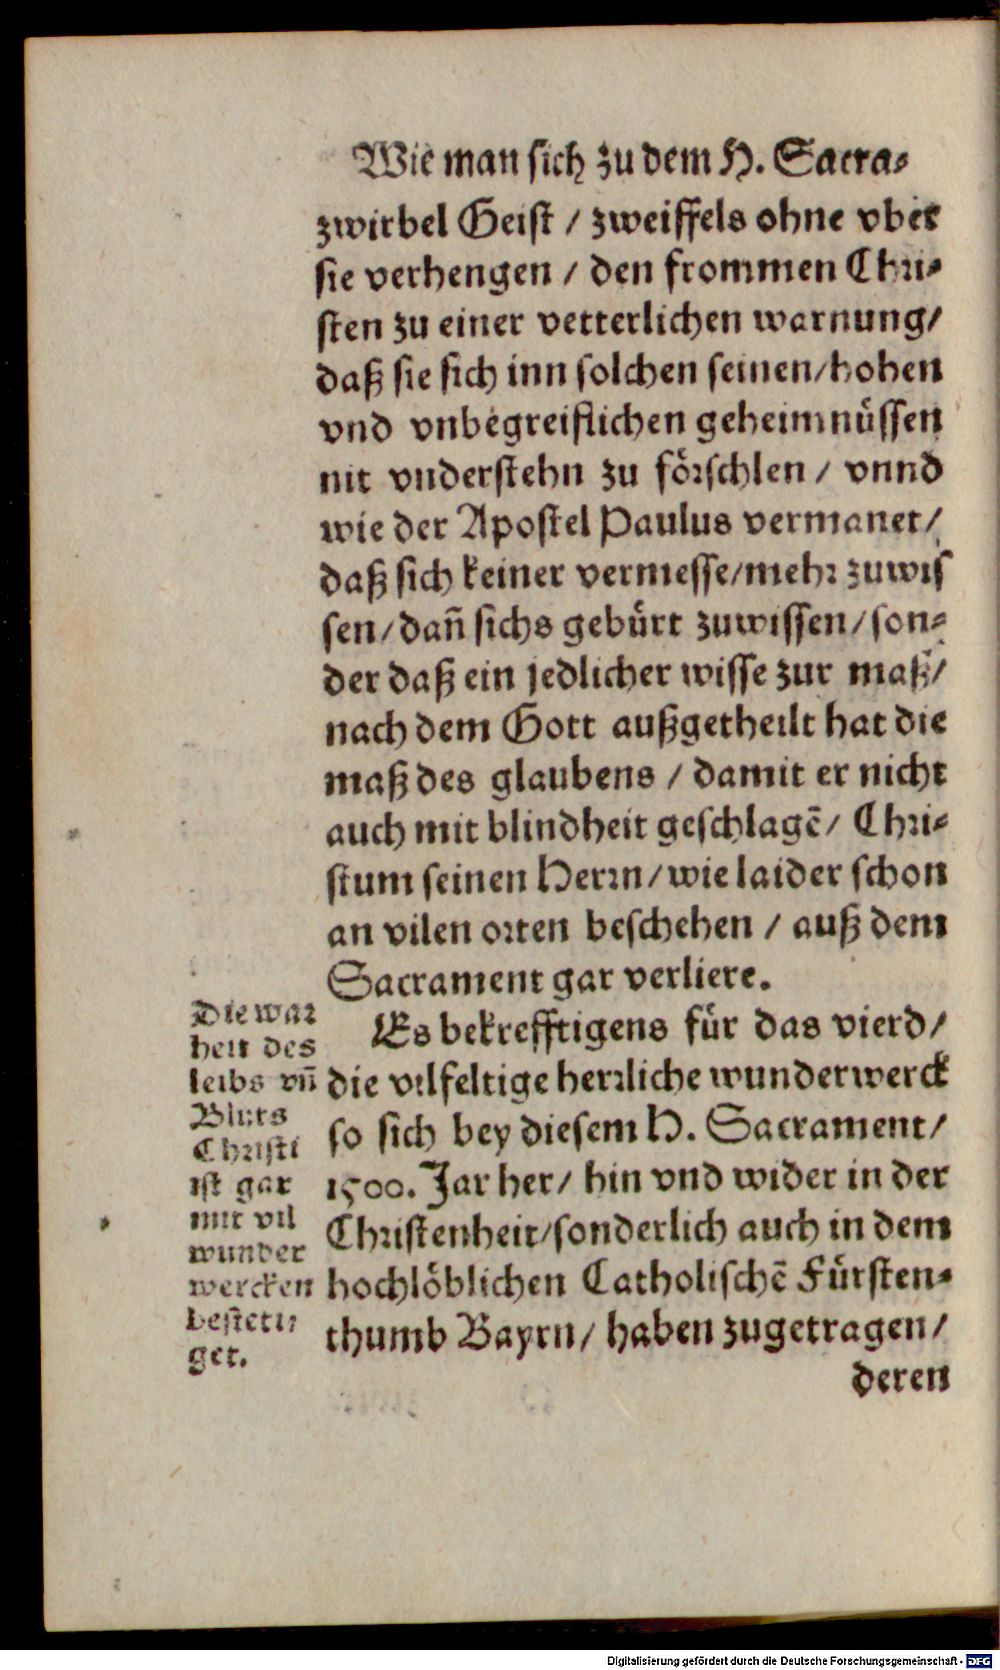 Wie man sich zu dem H. Sacra-
zwirbel Geist / zweiffels ohne vber
sie verhengen / den frommen Chri-
sten zu einer vetterlichen warnung/
daß sie sich inn solchen seinen/hohen
vnd vnbegreiflichen geheimnüssen
nit vnderstehn zu förschlen / vnnd
wie der Apostel Paulus vermanet/
daß sich keiner vermesse/mehr zuwis
sen/dañ sichs gebürt zuwissen/son-
der daß ein jedlicher wisse zur maß/
nach dem Gott außgetheilt hat die
maß des glaubens / damit er nicht
auch mit blindheit geschlagē/ Chri-
stum seinen Herrn/wie laider schon
an vilen orten beschehen / auß dem
Sacrament gar verliere.
Es bekrefftigens für das vierd/
die vilfeltige herrliche wunderwerck
so sich bey diesem H. Sacrament/
1500. Jar her/ hin vnd wider in der
Christenheit/sonderlich auch in dem
hochlöblichen Catholischē Fürsten-
thumb Bayrn/ haben zugetragen/
deren
Die war
heit des
leibs vñ
Bluts
Christi
ist gar
mit vil
wunder
wercken
besteti-
get.
Digitalisierung gefördert durch die Deutsche Forschungsgemeinschaft - DFG